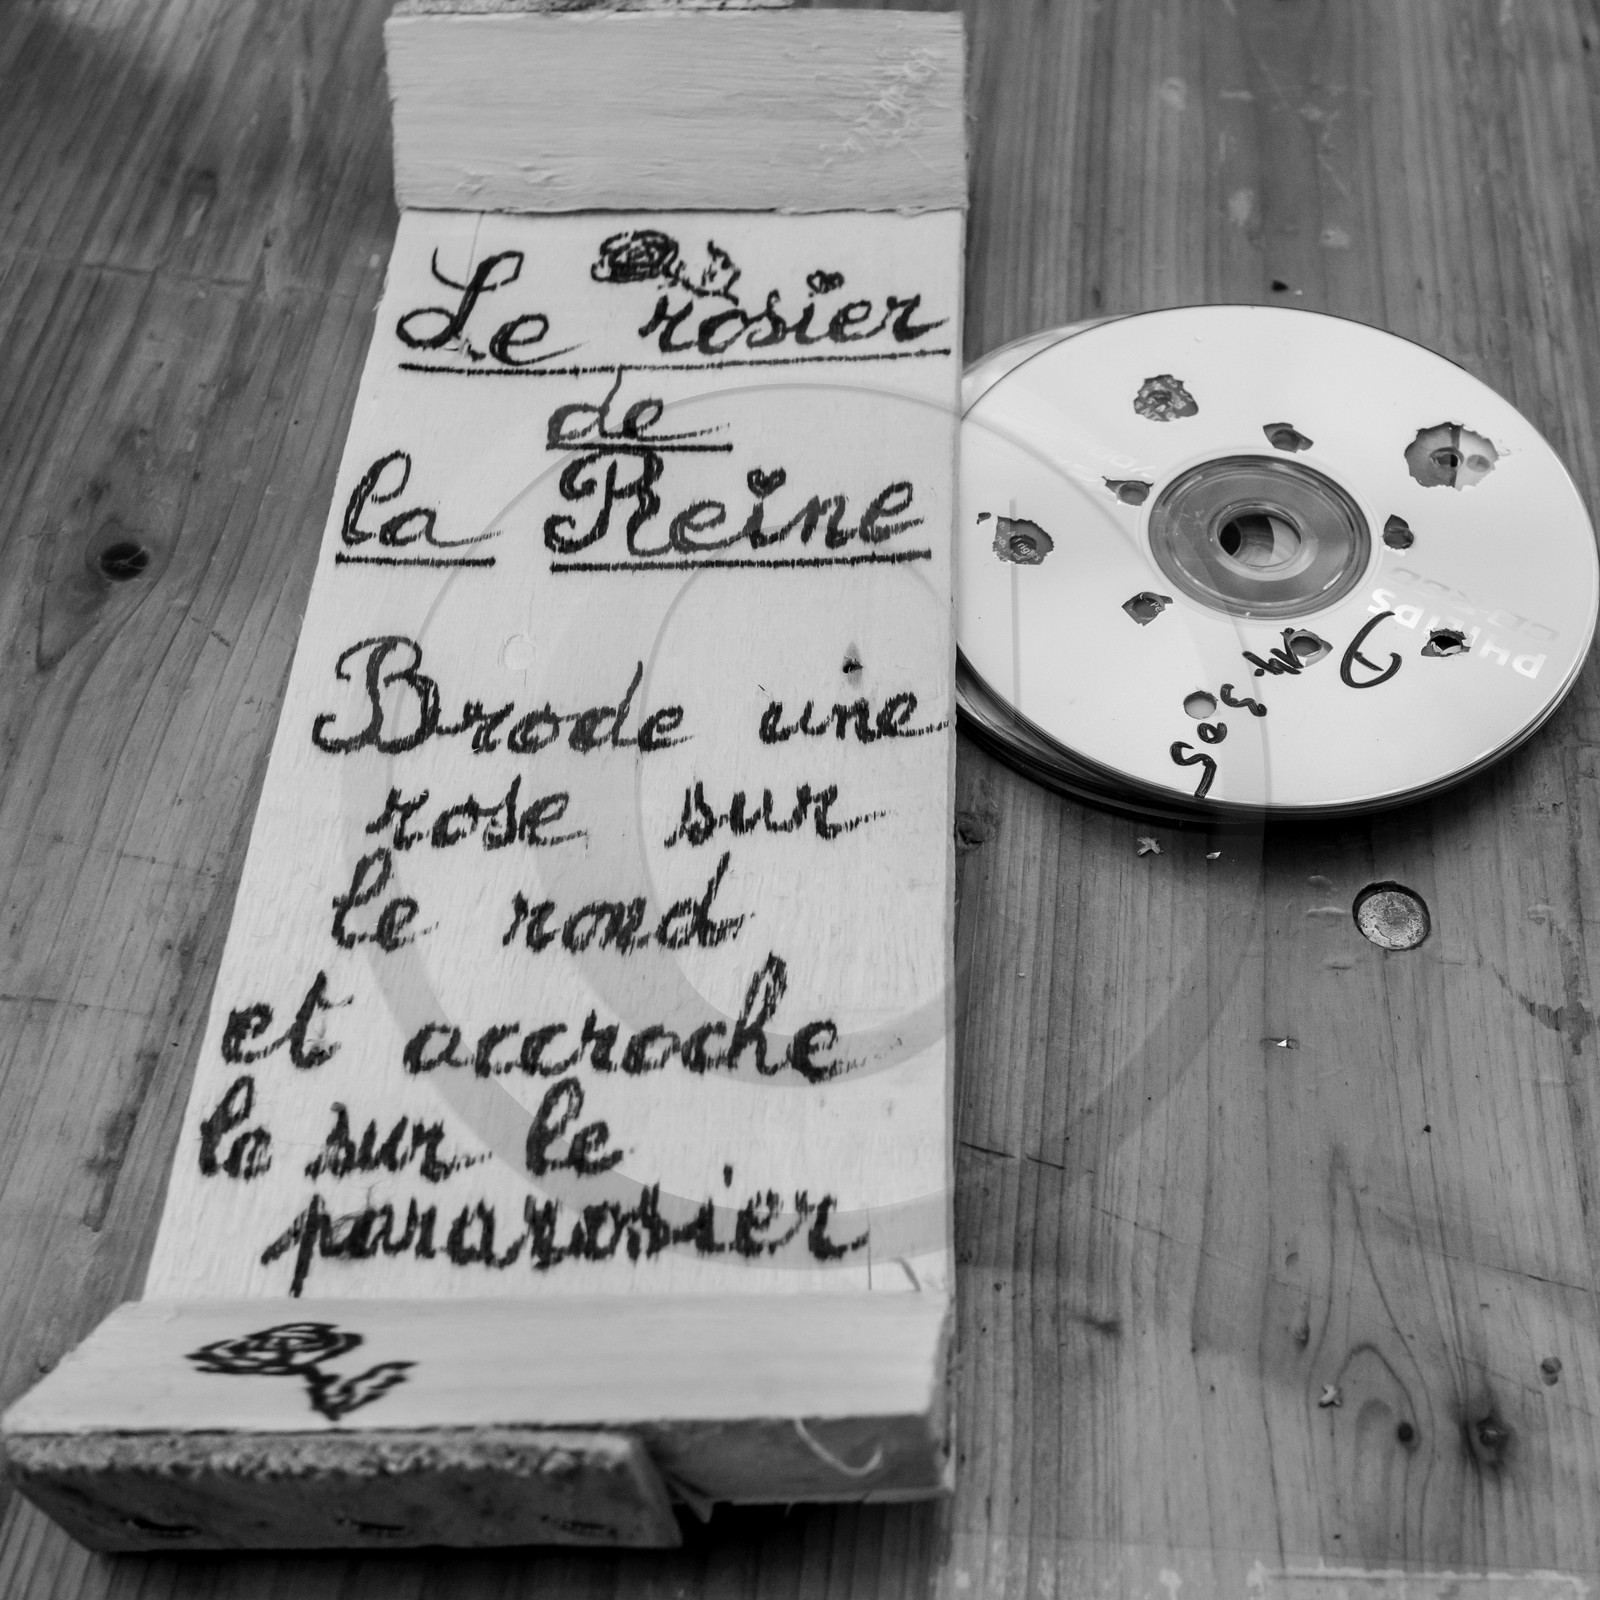 Le rosier
de
la Reine
Brode une
rose sur
le rond
et accroche
la sur le
pararosier
PHILIPS